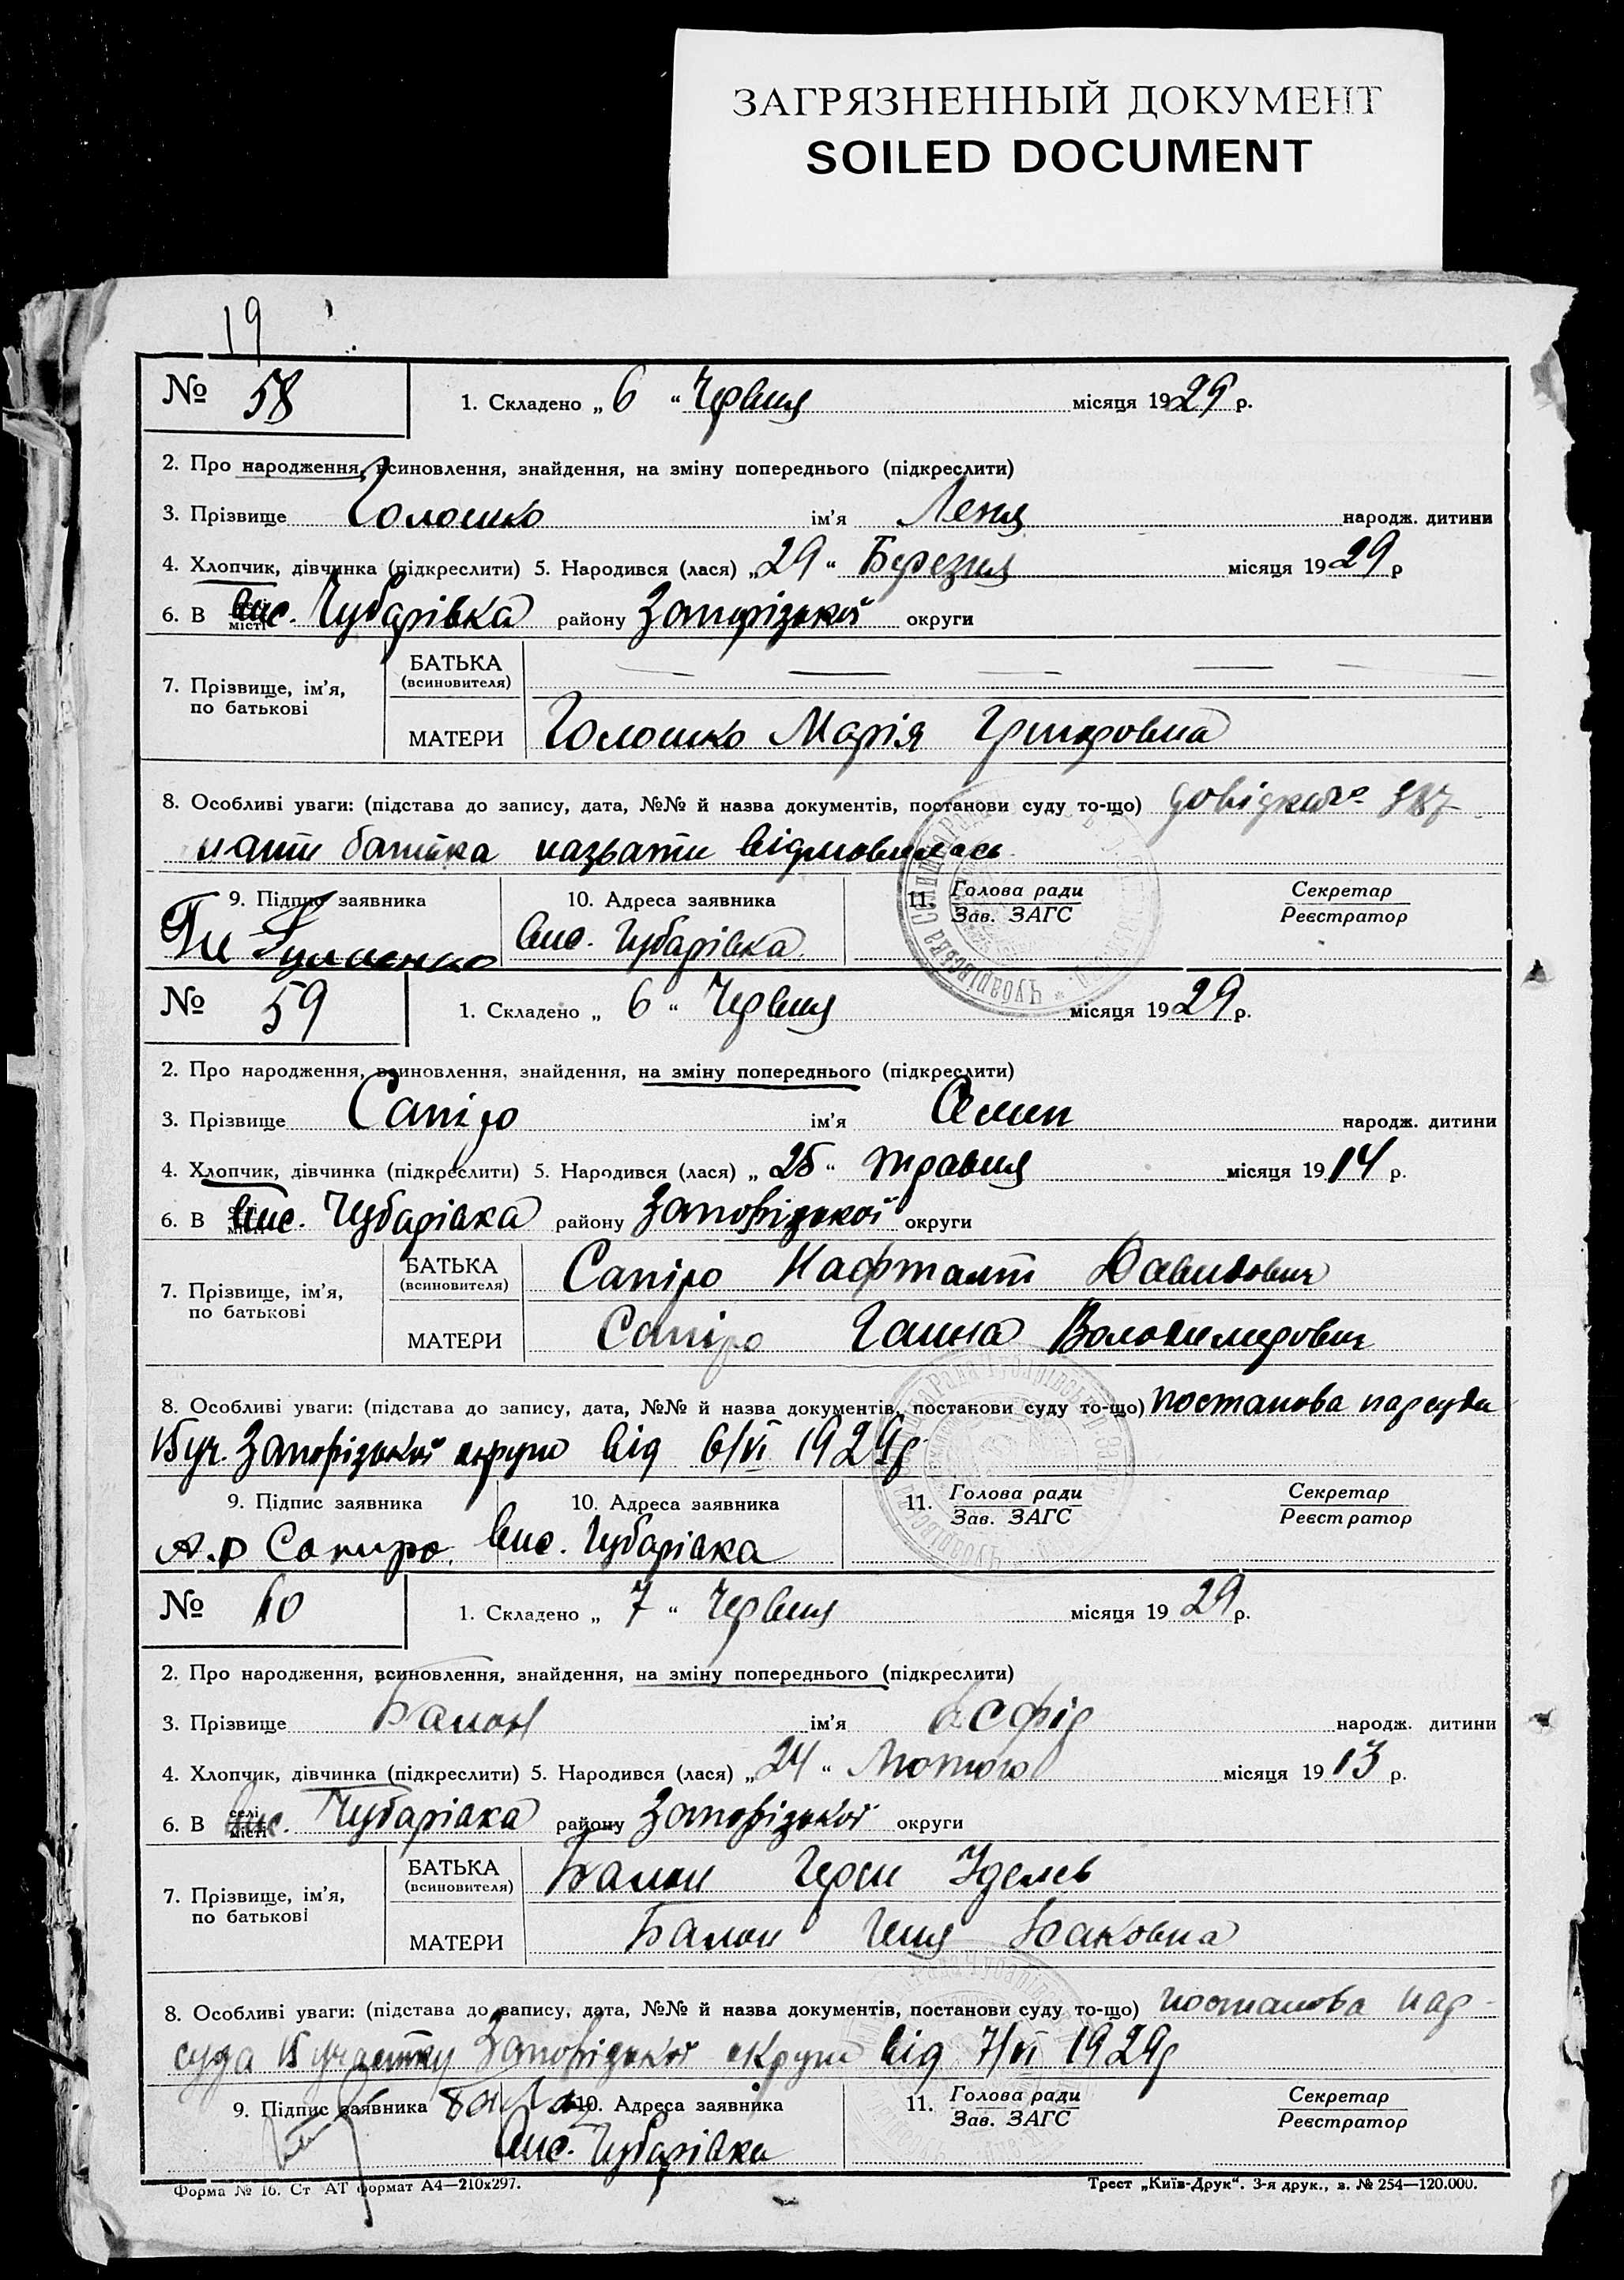 ЗАГРЯЗНЕННЫЙ ДОКУМЕНТ
SOILED DOCUMENT
19
№ 58 1. Складено „ 6 “ Червня місяця 1929 р.
2. Про народження, всиновлення, знайдення, на зміну попереднього (підкреслити)
3. Прізвище Голошко ім'я Леня народж. дитини
4. Хлопчик, дівчинка (підкреслити) 5. Народився (лася) „ 29 “ Березня місяця 1929 р
6. В вис. Чубарівка району Запорізької округи
7. Прізвище, ім'я, по батькові
БАТЬКА (всиновителя) — — — — —
МАТЕРИ Голошко Марія Григоровна
8. Особливі уваги: (підстава до запису, дата, №№ й назва документів, постанови суду то-що) довідка №
мати батька назвати відмовилась
9. Підпис заявника 10. Адреса заявника 11. Голова ради Зав. ЗАГС Секретар Реєстратор
вис. Чубарівка
№ 59 1. Складено „ 6 “ Червня місяця 1929 р.
2. Про народження, всиновлення, знайдення, на зміну попереднього (підкреслити)
3. Прізвище Сапіро ім'я народж. дитини
4. Хлопчик, дівчинка (підкреслити) 5. Народився (лася) „ 25 “ травня місяця 1914 р.
6. В вис. Чубарівка району Запорізької округи
7. Прізвище, ім'я, по батькові
БАТЬКА (всиновителя) Сапіро Нафталт Давидович
МАТЕРИ Сапіро Ганна Володимирович
8. Особливі уваги: (підстава до запису, дата, №№ й назва документів, постанови суду то-що) постанова нарсуда
15 уч. Запорізької округи від 6/VI 1929р
9. Підпис заявника 10. Адреса заявника 11. Голова ради Зав. ЗАГС Секретар Реєстратор
А.Д Сапиро. вис. Чубарівка
№ 60 1. Складено „ 7 “ Червня місяця 1929 р.
2. Про народження, всиновлення, знайдення, на зміну попереднього (підкреслити)
3. Прізвище Балон ім'я народж. дитини
4. Хлопчик, дівчинка (підкреслити) 5. Народився (лася) „ 24 “ Лютого місяця 1913 р.
6. В вис. Чубарівка району Запорізької округи
7. Прізвище, ім'я, по батькові
БАТЬКА (всиновителя) Балон Герш
МАТЕРИ Балон
8. Особливі уваги: (підстава до запису, дата, №№ й назва документів, постанови суду то-що) постанова нар-
суда 15 участку Запорізької округи від 7/VI 1929р
9. Підпис заявника 10. Адреса заявника 11. Голова ради Зав. ЗАГС Секретар Реєстратор
вис. Чубарівка
Форма № 16. Ст АТ формат А4—210x297. Трест „Київ-Друк“. 3-я друк., з. № 254—120.000.